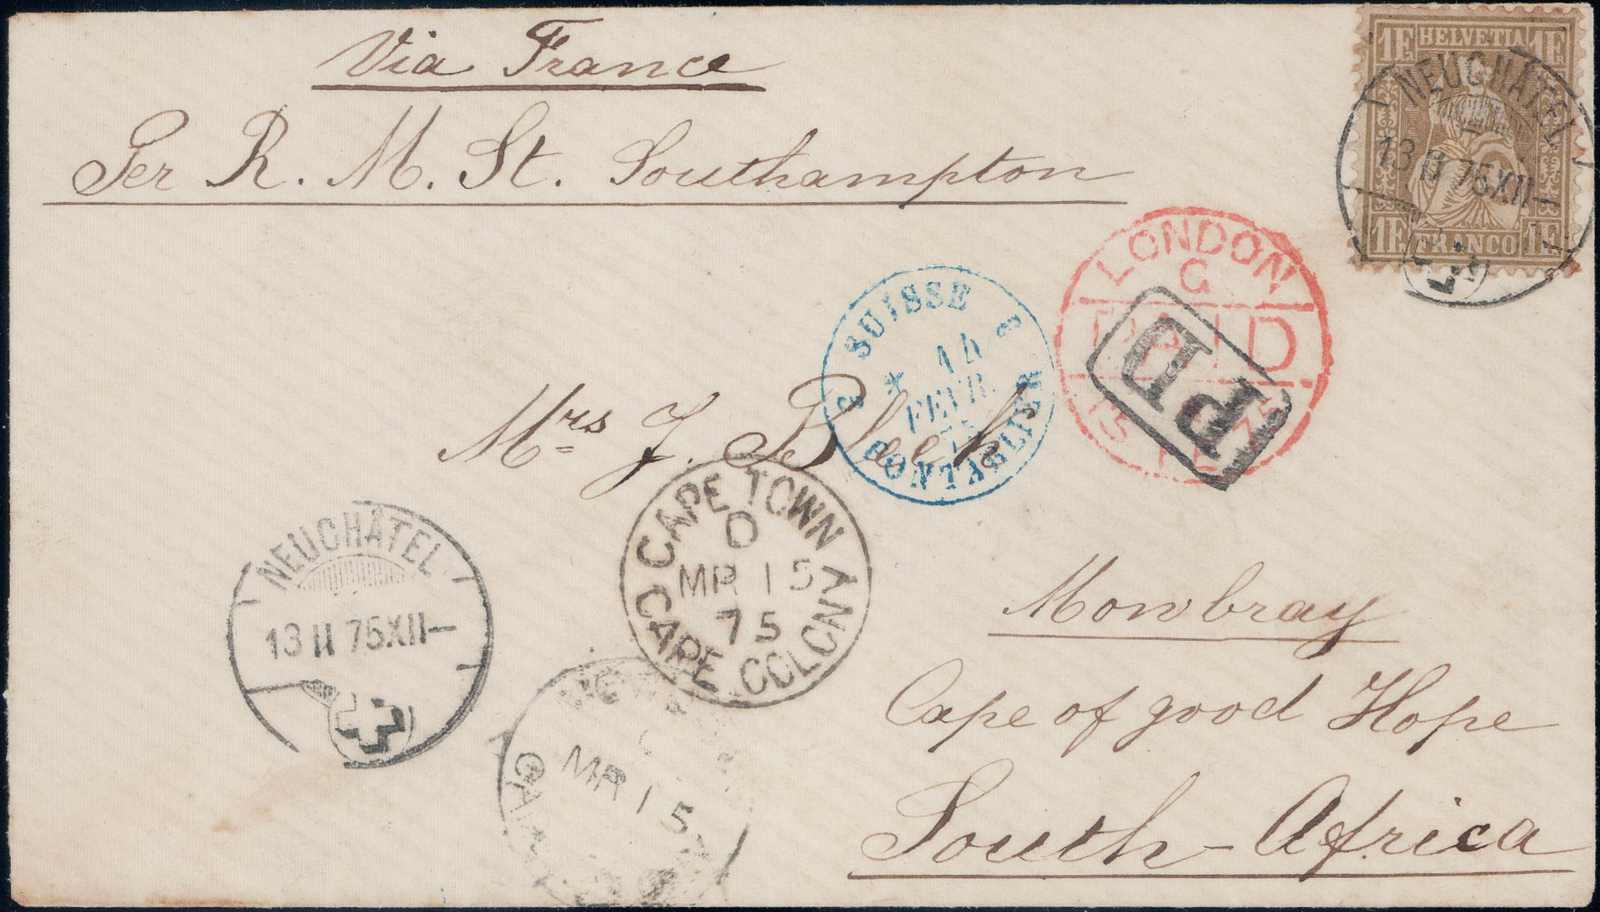 Via France
Per R. M. St. Southampton
1F HELVETIA 1F
1F FRANCO 1F
NEUCHÂTEL
13 II 75 XII—
LONDON
G
PAID
15
SUISSE
14
FEVR
PONTARLIER
PD
Mrs J. Bleek
CAPE TOWN
D
MR 15
75
CAPE COLONY
NEUCHÂTEL
13 II 75 XII—
MR 15
Mowbray
Cape of good Hope
South-Africa